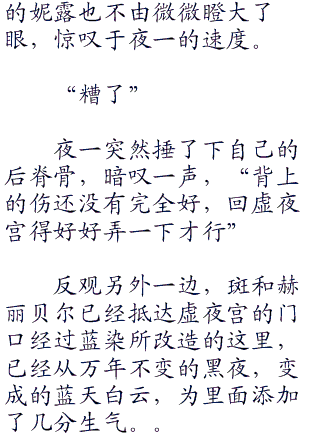 的妮露也不由微微瞪大了
眼，惊叹于夜一的速度。
“糟了”
夜一突然捶了下自己的
后脊骨，暗叹一声，“背上
的伤还没有完全好，回虚夜
宫得好好弄一下才行”
反观另外一边，斑和赫
丽贝尔已经抵达虚夜宫的门
口经过蓝染所改造的这里，
已经从万年不变的黑夜，变
成的蓝天白云，为里面添加
了几分生气。。